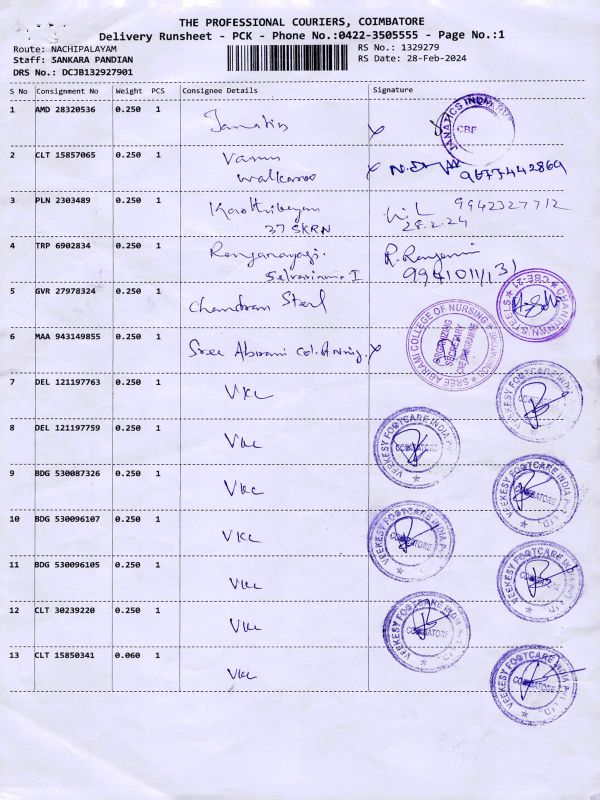 THE PROFESSIONAL COURIERS, COIMBATORE
Delivery Runsheet - PCK - Phone No.:0422-3505555 - Page No.:1
Route: NACHIPALAYAM RS No.: 1329279
Staff: SANKARA PANDIAN RS Date: 28-Feb-2024
DRS No.: DCJB132927901
S No Consignment No Weight PCS Consignee Details Signature
1 AMD 28320536 0.250 1 JANATICS INDIA CBF
2 CLT 15857065 0.250 1 Varun 9677442869
3 PLN 2303489 0.250 1 9942327712
37 SKRN 28.2.24
4 TRP 6902834 0.250 1 R. Ranjani
I
5 GVR 27978324 0.250 1 Chandran Steel CBE-21
6 MAA 943149855 0.250 1 Sree Abirami Col. SREE ABIRAMI COLLEGE OF NURSING ORGANIZING SECRETARY
7 DEL 121197763 0.250 1 VKC VEEKESY FOOTCARE INDIA COIMBATORE
8 DEL 121197759 0.250 1 VKC VEEKESY FOOTCARE INDIA COIMBATORE
9 BDG 530087326 0.250 1 VKC VEEKESY FOOTCARE INDIA PVT. LTD. COIMBATORE
10 BDG 530096107 0.250 1 VKC VEEKESY FOOTCARE INDIA COIMBATORE
11 BDG 530096105 0.250 1 VKC VEEKESY FOOTCARE INDIA COIMBATORE
12 CLT 30239220 0.250 1 VKC VEEKESY FOOTCARE INDIA COIMBATORE
13 CLT 15850341 0.060 1 VKC VEEKESY FOOTCARE INDIA PVT. LTD. COIMBATORE